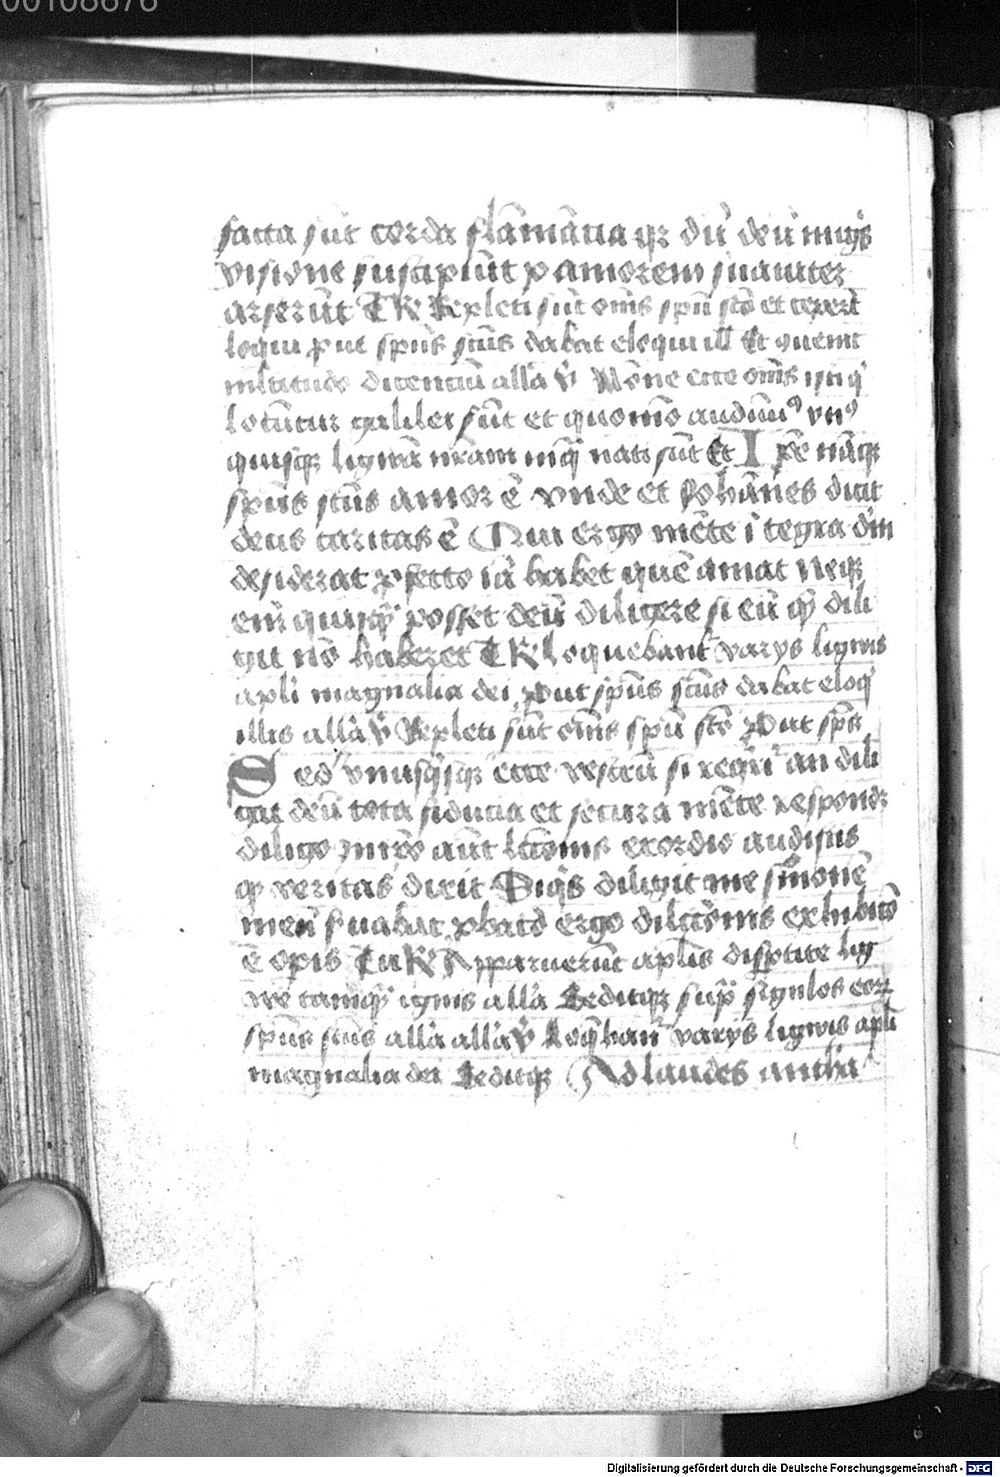 00108676
facta sūt corda flāmātia qꝛ dū deū in igīs
visione susceperūt p amorem suauiter
arserūt Tu R Repleti sūt oms spū scō et cepert
loqui put spūs scūs dabat eloqui ill Et ↄuenit
multitudo dicentiū alla v̄ Nōne ecce oms isti q̄
locūtur galilei sūt et quomō audiuim⁹ vn⁹
quisqꝫ liguā nrām in q̄ nati sūt Et Ipē nāqꝫ
spūs scūs amor ē vnde et Johānes dicit
deus caritas ē Qui ergo mēte ītegra dm
desiderat pfecto iā habet quē amat Neqꝫ
em quisq̄ posset deū diligere si eū q̄ dili
git nō haberet Tu R Loquebant varijs liguis
apli magnalia dei put spūs scūs dabat eloq
illis alla v̄ Repleti sūt oms spū scō Put spūs
Sed vnusq̄sqꝫ ecce vestrū si reqrit an dili
gat deū tota fiducia et secura mēte respondꝫ
diligo In ipo aūt lcōnis exordio audistis
q veritas dixit Siq̄s diligit me smonē
meū suabit pbatō ergo dilctōnis exhibitō
ē opis Tu R Apparuerūt aplis dispertite lig
we tamq̄ ignis alla Seditqꝫ supra singulos eorꝫ
spūs scūs alla alla v̄ Loqban varijs liguis apli
magnalia dei Seditqꝫ Ad laudes anthia
Digitalisierung gefördert durch die Deutsche Forschungsgemeinschaft - DFG